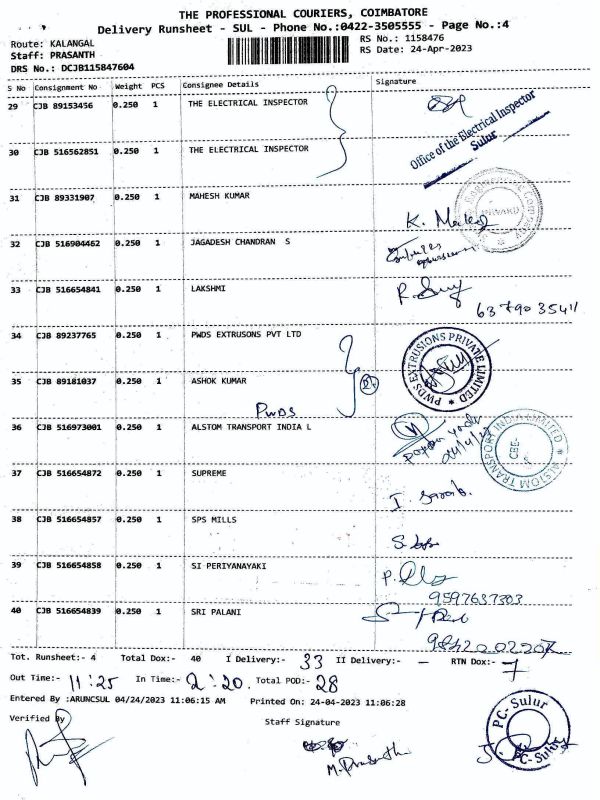 THE PROFESSIONAL COURIERS, COIMBATORE
Delivery Runsheet - SUL - Phone No.:0422-3505555 - Page No.:4
Route: KALANGAL RS No.: 1158476
Staff: PRASANTH RS Date: 24-Apr-2023
DRS No.: DCJB115847604
S No Consignment No Weight PCS Consignee Details Signature
29 CJB 89153456 0.250 1 THE ELECTRICAL INSPECTOR
Office of the Electrical Inspector
Sulur
30 CJB 516562851 0.250 1 THE ELECTRICAL INSPECTOR
31 CJB 89331907 0.250 1 MAHESH KUMAR
32 CJB 516904462 0.250 1 JAGADESH CHANDRAN S
33 CJB 516654841 0.250 1 LAKSHMI
63790354
34 CJB 89237765 0.250 1 PWDS EXTRUSONS PVT LTD
PWDS EXTRUSIONS PRIVATE LIMITED
35 CJB 89181037 0.250 1 ASHOK KUMAR
PWDS
36 CJB 516973001 0.250 1 ALSTOM TRANSPORT INDIA L
ALSTOM TRANSPORT INDIA LIMITED
CBE
37 CJB 516654872 0.250 1 SUPREME
38 CJB 516654857 0.250 1 SPS MILLS
39 CJB 516654858 0.250 1 SI PERIYANAYAKI
9597637303
40 CJB 516654839 0.250 1 SRI PALANI
Tot. Runsheet:- 4 Total Dox:- 40 I Delivery:- 33 II Delivery:- — RTN Dox:- 7
Out Time:- 11:25 In Time:- 2:20. Total POD:- 28
Entered By :ARUNCSUL 04/24/2023 11:06:15 AM Printed On: 24-04-2023 11:06:28
Verified By Staff Signature
M. Prasanth
PC- Sulur
PC- Sulur